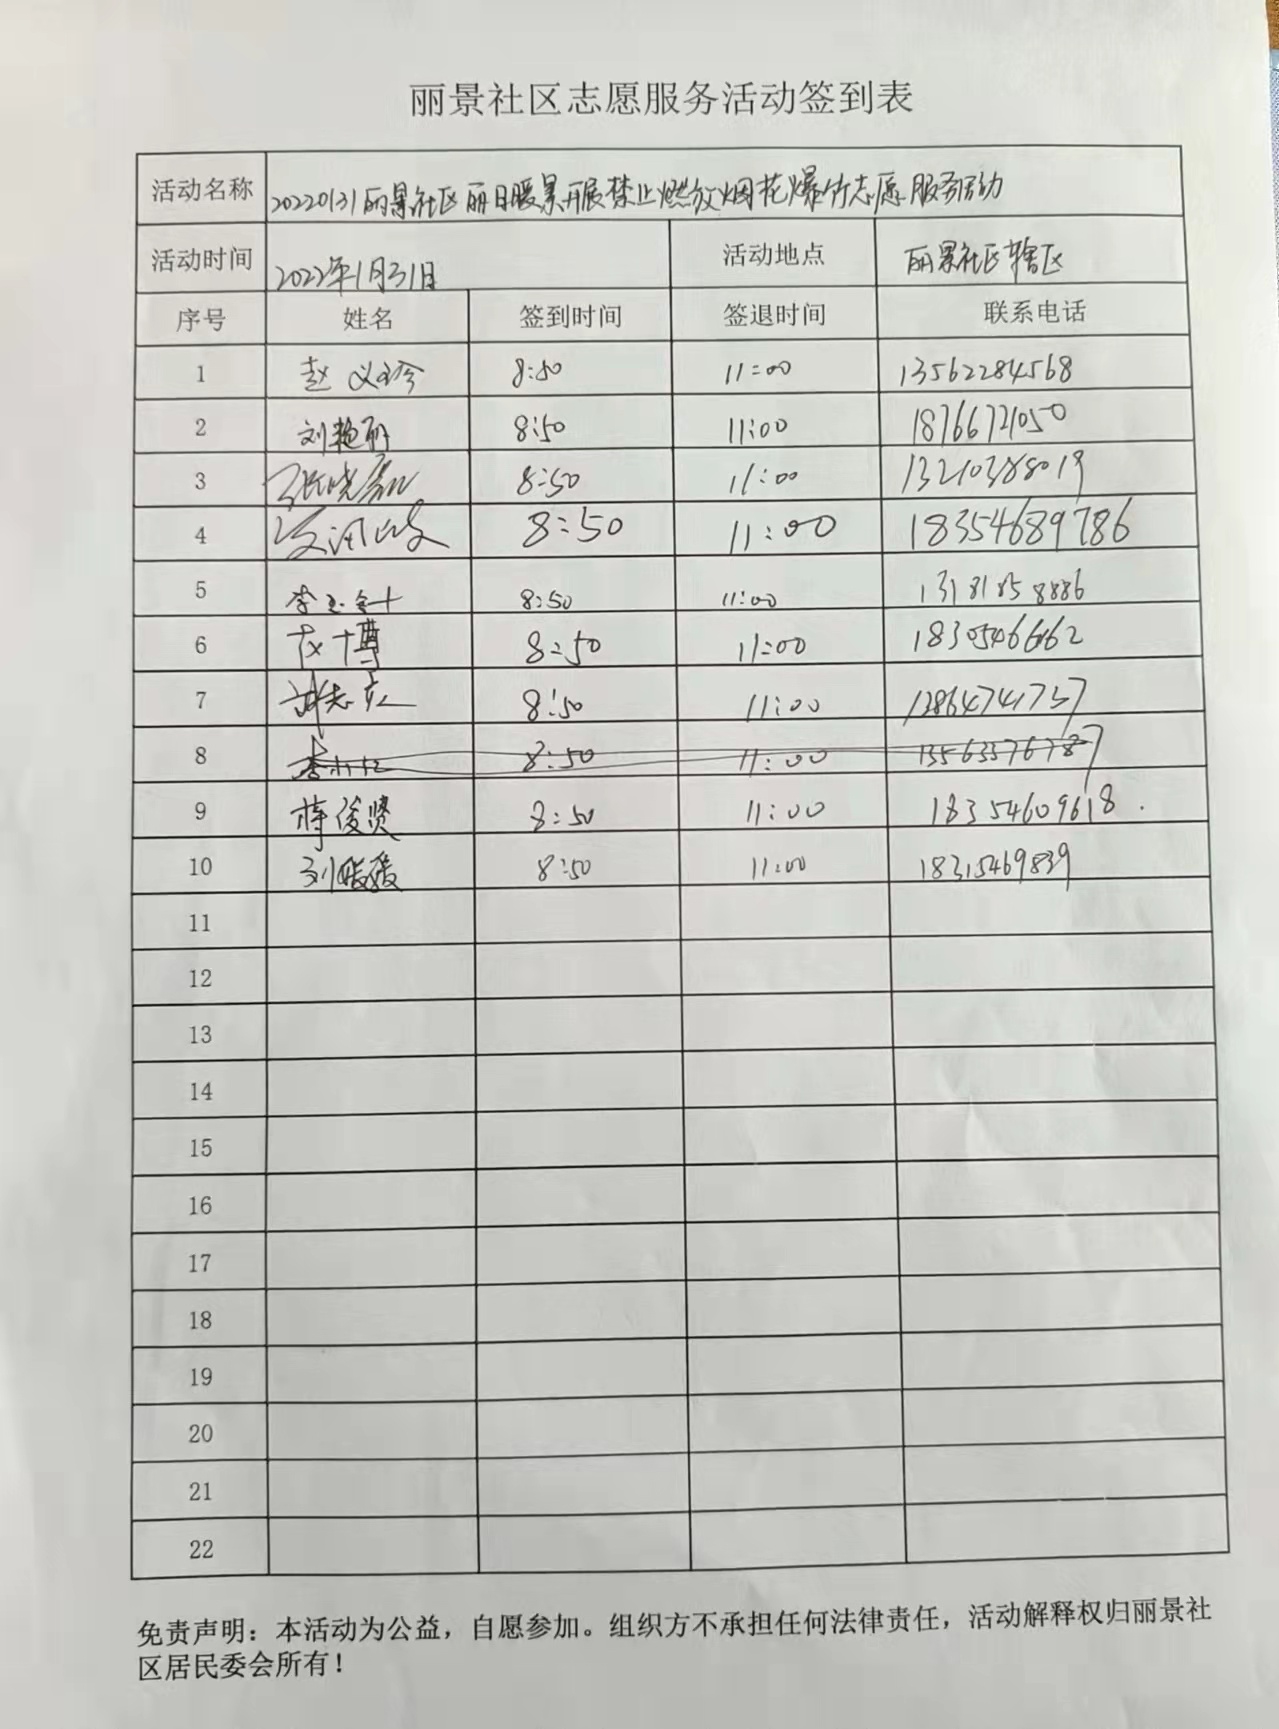 丽景社区志愿服务活动签到表
活动名称 20220131丽景社区丽日暖景开展禁止燃放烟花爆竹志愿服务活动
活动时间 2022年1月31日 活动地点 丽景社区辖区
序号 姓名 签到时间 签退时间 联系电话
1 赵义珍 8:50 11:00 13562284568
2 刘艳丽 8:50 11:00 18766721050
3 张晓磊 8:50 11:00 13210388019
4 8:50 11:00 18354689786
5 李玉针 8:50 11:00 13181858886
6 博 8:50 11:00
7 8:50 11:00
8 8:50 11:00
9 蒋俊贤 8:50 11:00 18354609618
10 刘媛媛 8:50 11:00 18315469839
11
12
13
14
15
16
17
18
19
20
21
22
免责声明：本活动为公益，自愿参加。组织方不承担任何法律责任，活动解释权归丽景社
区居民委会所有！